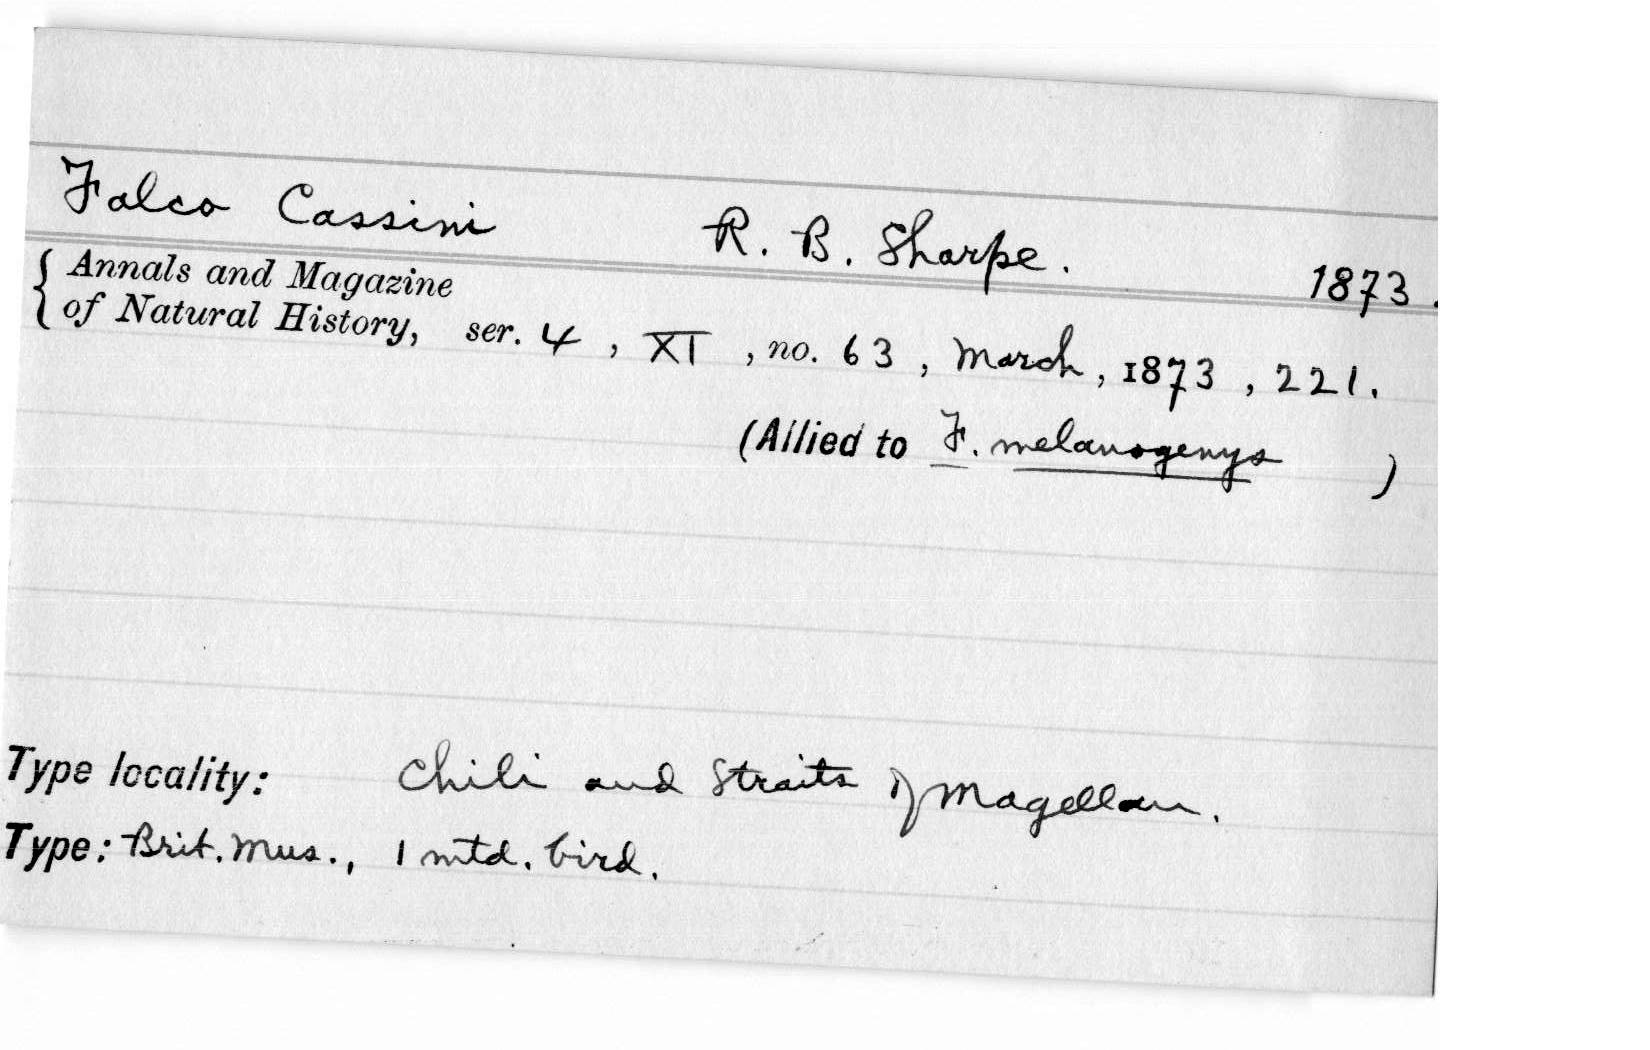 Falco Cassini R. B. Sharpe. 1873.
{ Annals and Magazine
of Natural History, ser. 4, XI, no. 63, March, 1873, 221.
(Allied to F. melanogenys )
Type locality: Chili and Straits of Magellan.
Type: Brit. Mus., 1 mtd. bird.